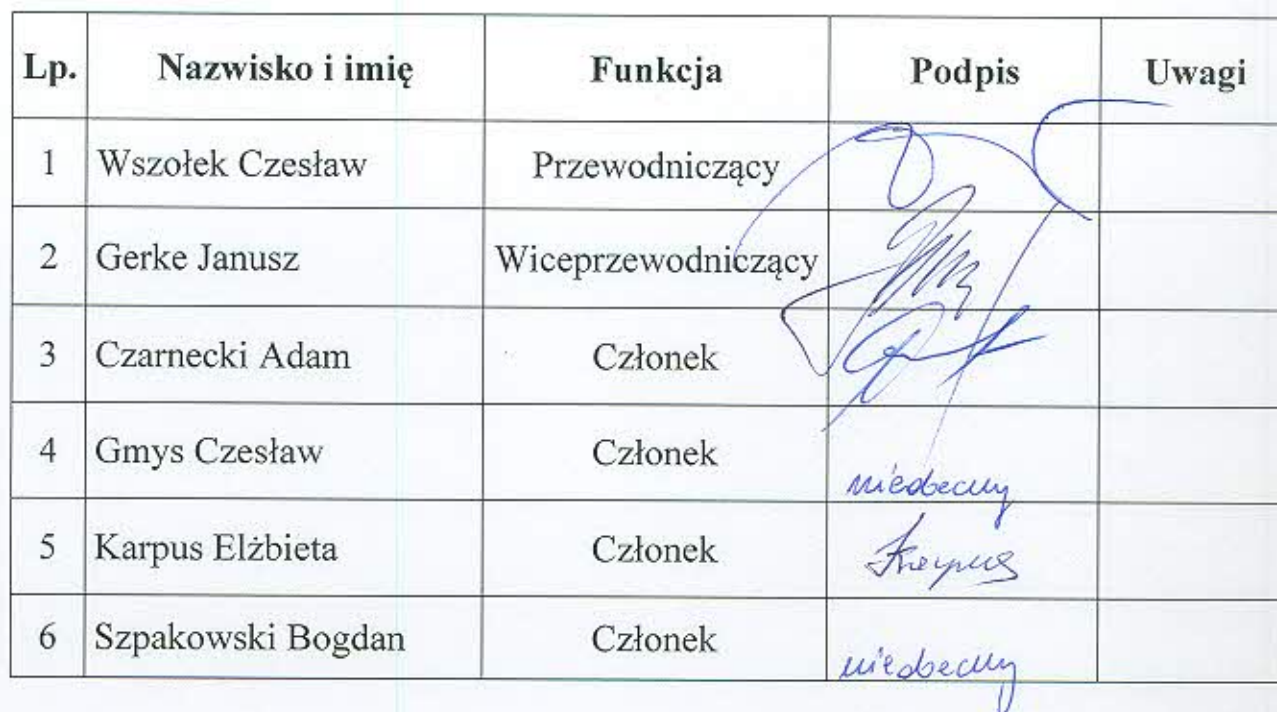 Lp. Nazwisko i imię Funkcja Podpis Uwagi
1 Wszołek Czesław Przewodniczący
2 Gerke Janusz Wiceprzewodniczący
3 Czarnecki Adam Członek
4 Gmys Czesław Członek nieobecny
5 Karpus Elżbieta Członek Karpus
6 Szpakowski Bogdan Członek nieobecny